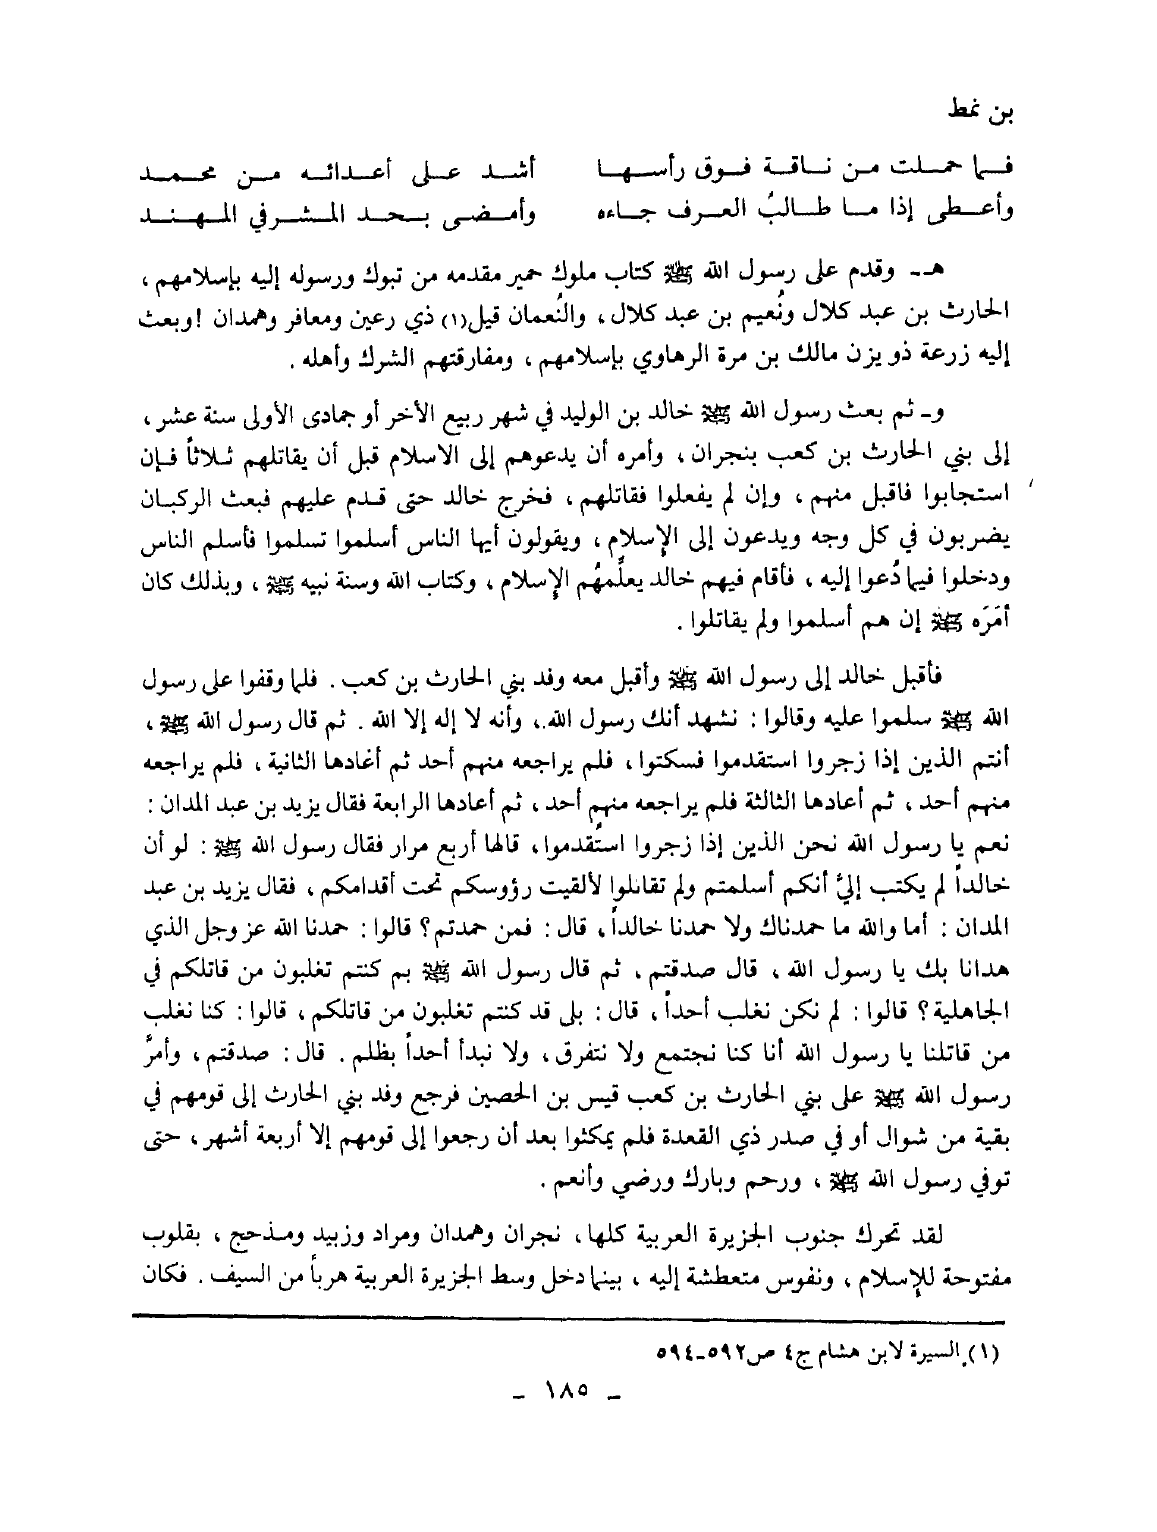 بن نمط
فما حملت من ناقة فوق رأسها    أشد على أعدائه من محمد
وأعطى إذا ما طالبُ العرف جاءه    وأمضى بحد المشرفي المهند
هـ- وقدم على رسول الله ﷺ كتاب ملوك حمير مقدمه من تبوك ورسوله إليه بإسلامهم ،
الحارث بن عبد كلال ونُعيم بن عبد كلال ، والنُعمان قيل(١) ذي رعين ومعافر وهمدان !وبعث
إليه زرعة ذو يزن مالك بن مرة الرهاوي بإسلامهم ، ومفارقتهم الشرك وأهله .
و- ثم بعث رسول الله ﷺ خالد بن الوليد في شهر ربيع الأخر أو جمادى الأولى سنة عشر ،
إلى بني الحارث بن كعب بنجران ، وأمره أن يدعوهم إلى الاسلام قبل أن يقاتلهم ثلاثاً فإن
استجابوا فاقبل منهم ، وإن لم يفعلوا فقاتلهم ، فخرج خالد حتى قدم عليهم فبعث الركبان
يضربون في كل وجه ويدعون إلى الإسلام ، ويقولون أيها الناس أسلموا تسلموا فأسلم الناس
ودخلوا فيما دُعوا إليه ، فأقام فيهم خالد يعلِّمهُم الإسلام ، وكتاب الله وسنة نبيه ﷺ ، وبذلك كان
أمَرَه ﷺ إن هم أسلموا ولم يقاتلوا .
فأقبل خالد إلى رسول الله ﷺ وأقبل معه وفد بني الحارث بن كعب . فلما وقفوا على رسول
الله ﷺ سلموا عليه وقالوا : نشهد أنك رسول الله.، وأنه لا إله إلا الله . ثم قال رسول الله ﷺ ،
أنتم الذين إذا زجروا استقدموا فسكتوا ، فلم يراجعه منهم أحد ثم أغادها الثانية ، فلم يراجعه
منهم أحد ، ثم أعادها الثالثة فلم يراجعه منهم أحد ، ثم أعادها الرابعة فقال يزيد بن عبد المدان :
نعم يا رسول الله نحن الذين إذا زجروا استُقدموا، قالها أربع مرار فقال رسول الله ﷺ : لو أن
خالداً لم يكتب إليَّ أنكم أسلمتم ولم تقاتلوا لألقيت رؤوسكم تحت أقدامكم ، فقال يزيد بن عبد
المدان : أما والله ما حمدناك ولا حمدنا خالداً ، قال : فمن حمدتم؟ قالوا : حمدنا الله عز وجل الذي
هدانا بك يا رسول الله ، قال صدقتم ، ثم قال رسول الله ﷺ بم كنتم تغلبون من قاتلكم في
الجاهلية؟ قالوا : لم نكن نغلب أحداً ، قال : بلى قد كنتم تغلبون من قاتلكم ، قالوا : كنا نغلب
من قاتلنا يا رسول الله أنا كنا نجتمع ولا نتفرق ، ولا نبدأ أحداً بظلم . قال : صدقتم ، وأمرَّ
رسول الله ﷺ على بني الحارث بن كعب قيس بن الحصين فرجع وفد بني الحارث إلى قومهم في
بقية من شوال أو في صدر ذي القعدة فلم يمكثوا بعد أن رجعوا إلى قومهم إلا أربعة أشهر ، حتى
توفي رسول الله ﷺ ، ورحم وبارك ورضي وأنعم .
لقد تحرك جنوب الجزيرة العربية كلها ، نجران وهمدان ومراد وزبيد ومذحج ، بقلوب
مفتوحة للإسلام ، ونفوس متعطشة إليه ، بينما دخل وسط الجزيرة العربية هرباً من السيف . فكان
(١) السيرة لابن هشام ج٤ ص٥٩٢-٥٩٤
- ١٨٥ -